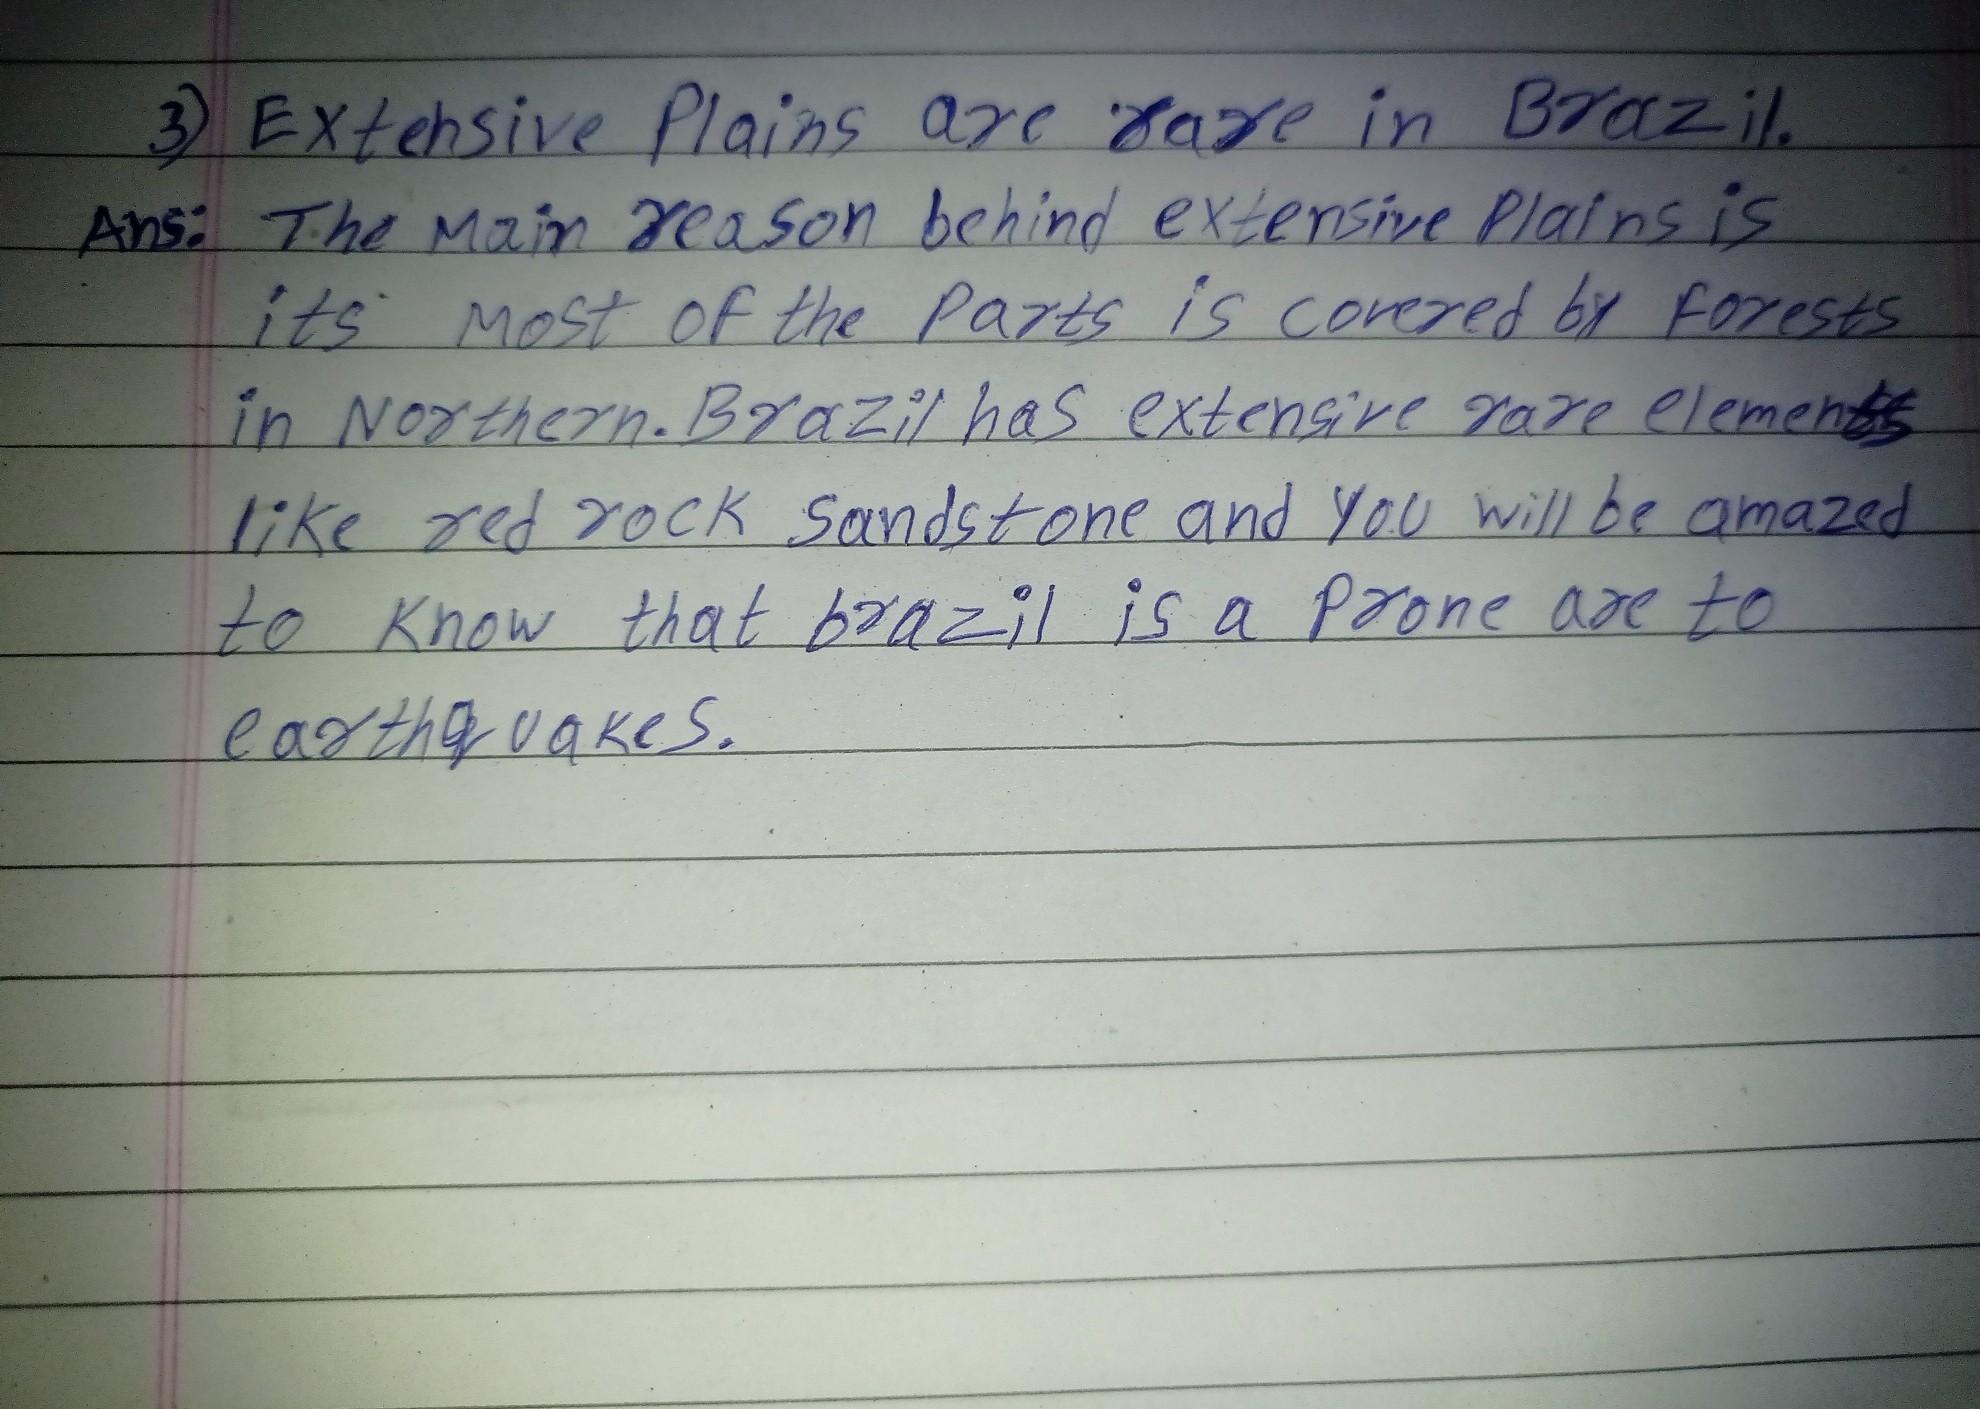 3) Extensive Plains are rare in Brazil.
Ans: The Main reason behind extensive Plains is
its Most of the Parts is covered by Forests
in Northern. Brazil has extensive rare elements
like red rock Sandstone and you will be amazed
to Know that brazil is a Prone are to
earthquakes.